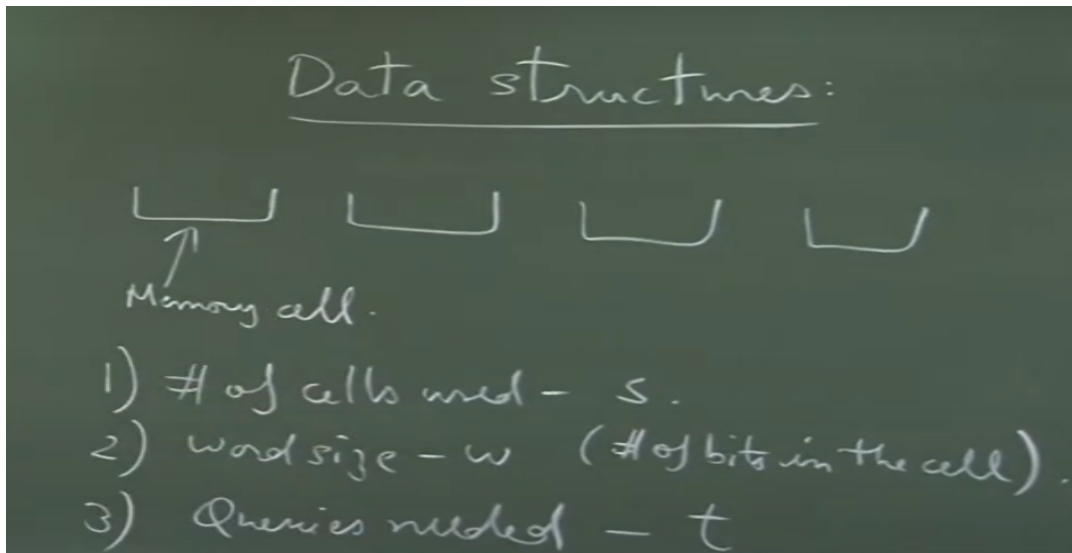 Data structures:
Memory cell.
1) # of cells used - s.
2) word size - w (# of bits in the cell).
3) Queries needed - t